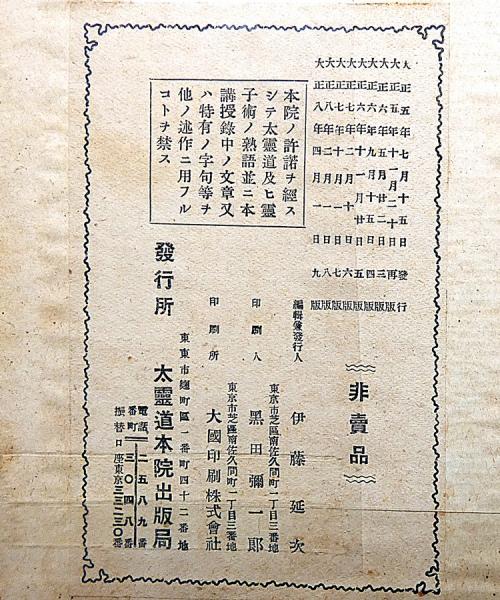 大正五年七月十五日發行
大正五年十一月二十日再版
大正六年五月廿二日三版
大正六年九月十五日四版
大正六年十一月廿日五版
大正七年 六版
大正七年 七版
大正七年 八版
大正八年四月一日九版
非賣品
本院ノ許諾チ經ス
シテ太靈道及ヒ靈
子術ノ熟語並ニ本
講授錄中ノ文章又
ハ特有ノ字句等チ
他ノ述作ニ用フル
コトチ禁ス
編輯兼發行人 伊藤延次
東京市芝區南佐久間町二丁目三番地
印刷人 黑田彌一郎
東京市芝區南佐久間町二丁目三番地
印刷所 大國印刷株式會社
東京市麴町區一番町四十二番地
發行所 太靈道本院出版局
電話番町 二五八九番
三〇四八番
振替口座東京三三二三〇番